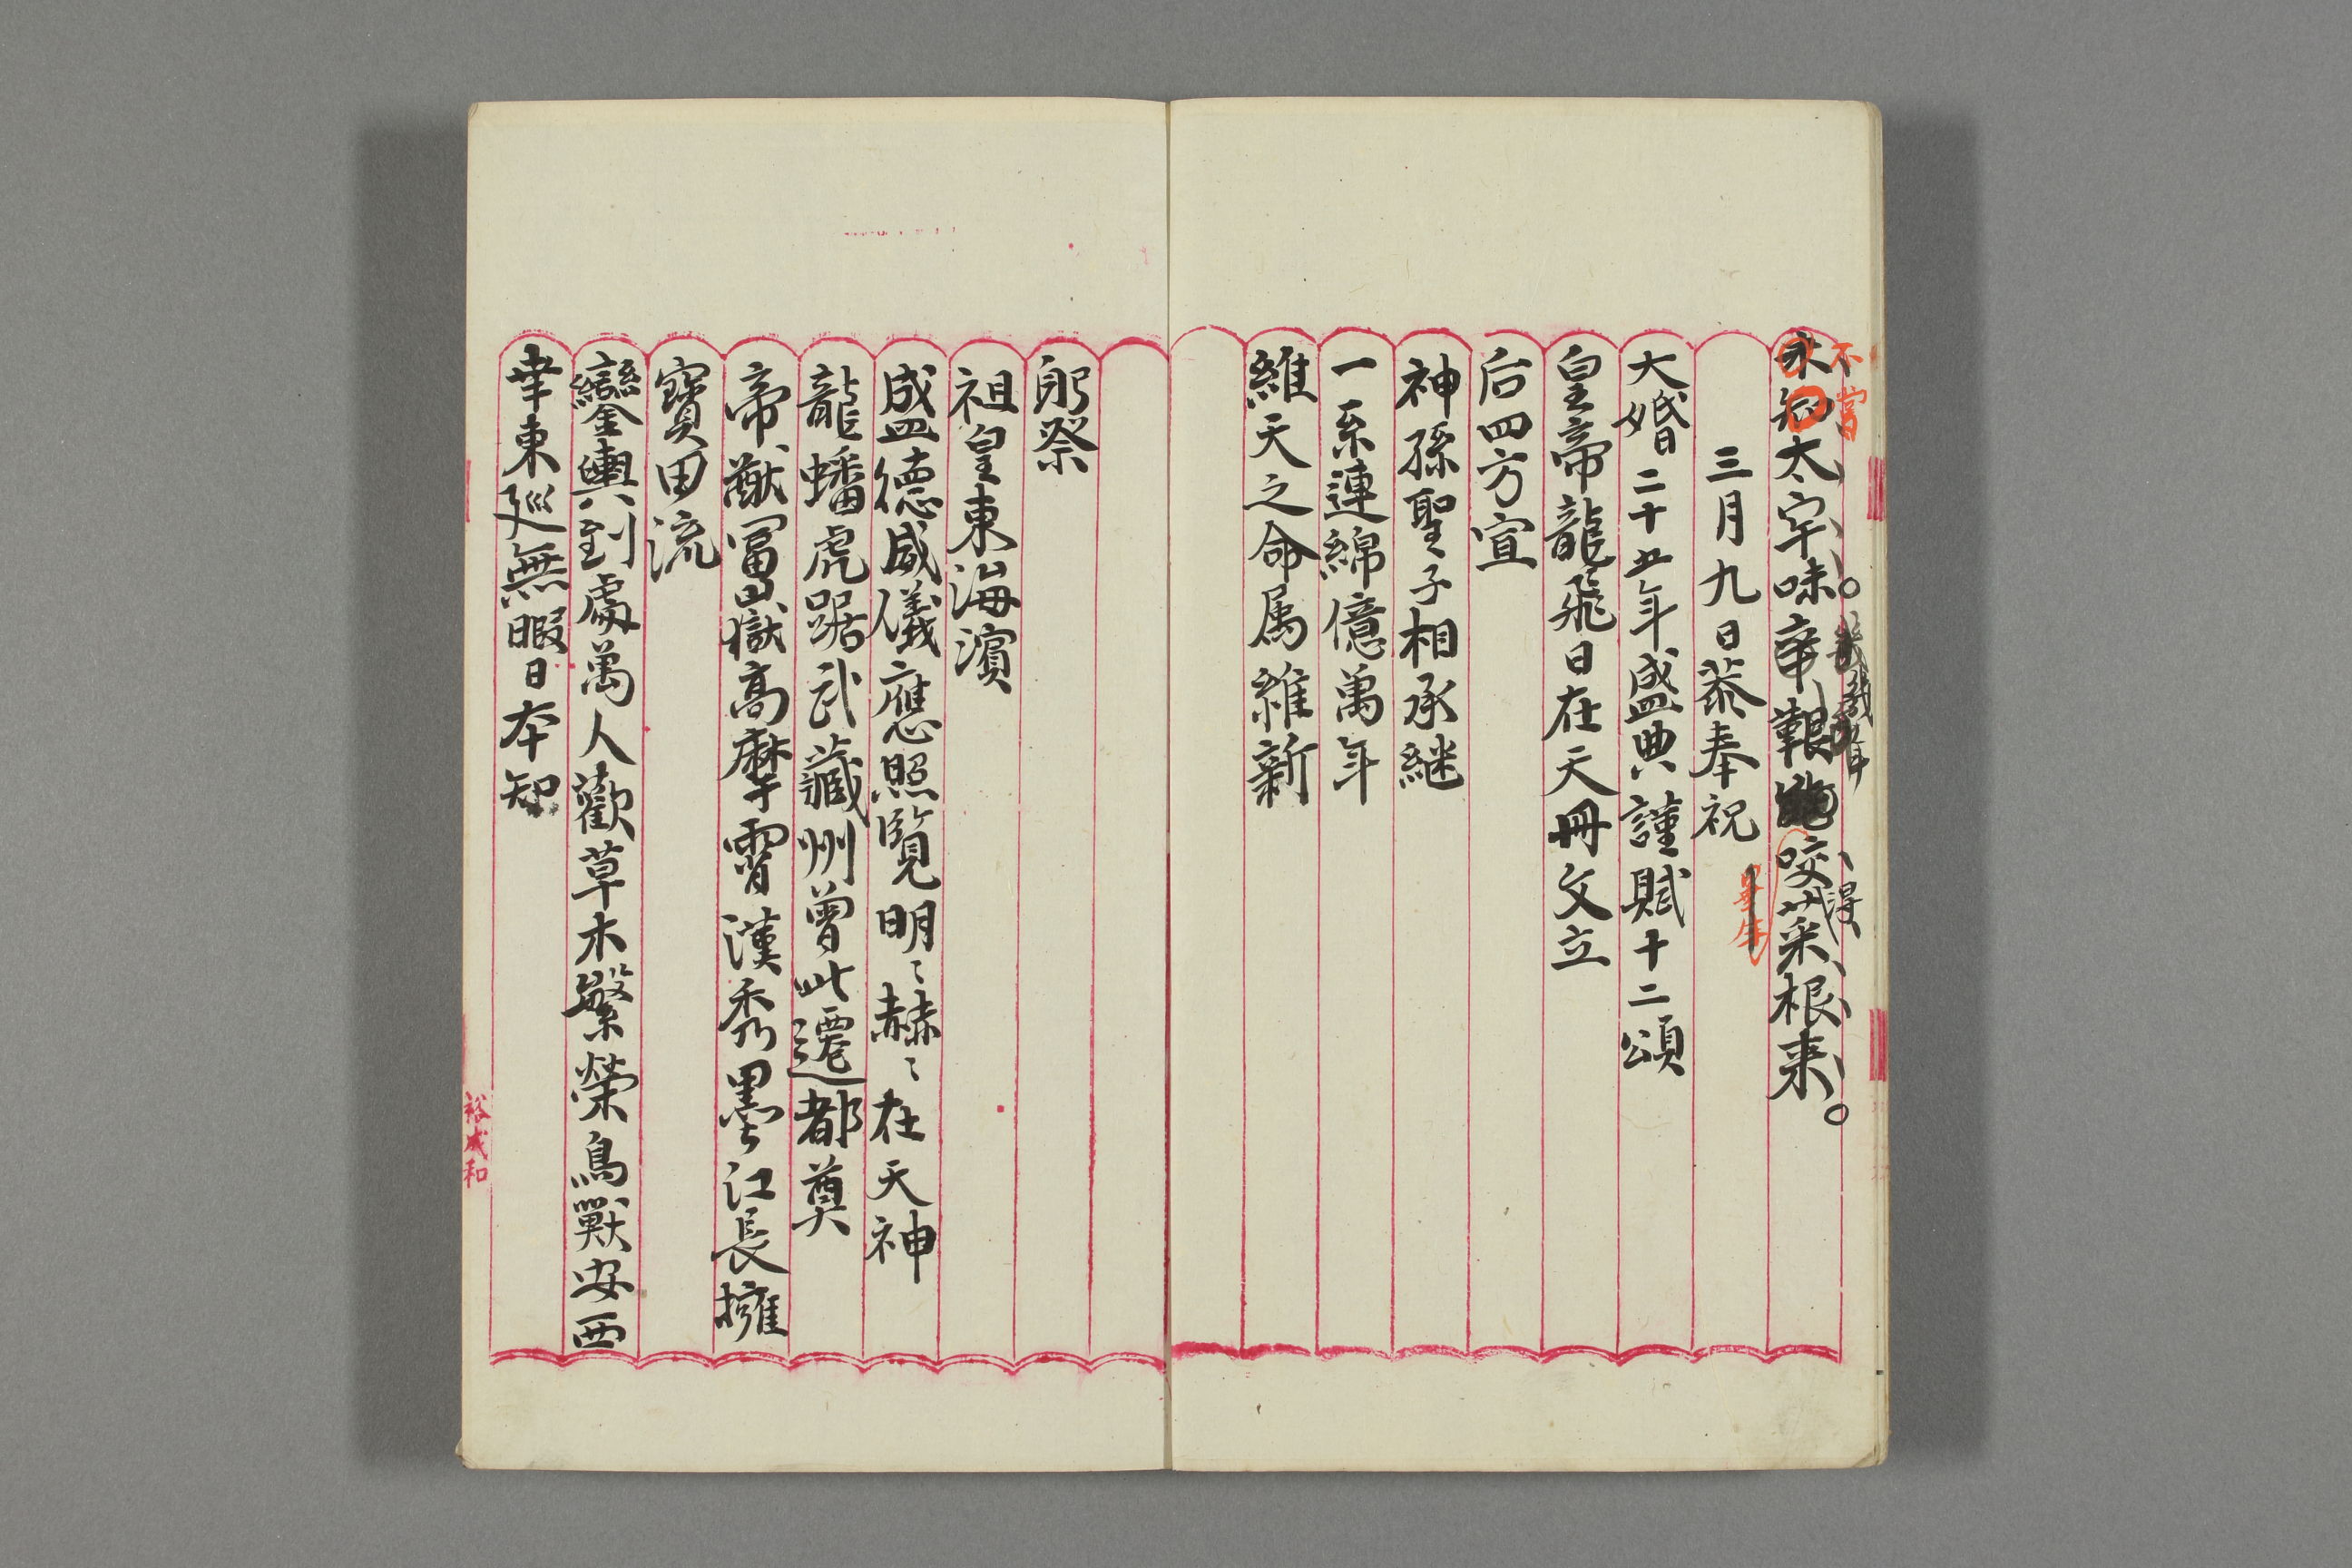 不嘗
永知太牢味。辛艱咬菜根来。
幾歳年
得
三月九日恭奉祝
大婚二十五年盛典謹賦十二頌
皇帝龍飛日在天冊文立
后四方宣
神孫聖子相承継
一系連綿億萬年
維天之命属維新
躬祭
祖皇東海濱
盛徳威儀應照覧明〻赫〻在天神
龍蟠虎踞武藏州曽此遷都奠
帝猷冨嶽高摩霄漢秀墨江長擁
寶田流
鑾輿到處萬人歡草木繁榮鳥獸安西
幸東廵無暇日夲知
裕成和